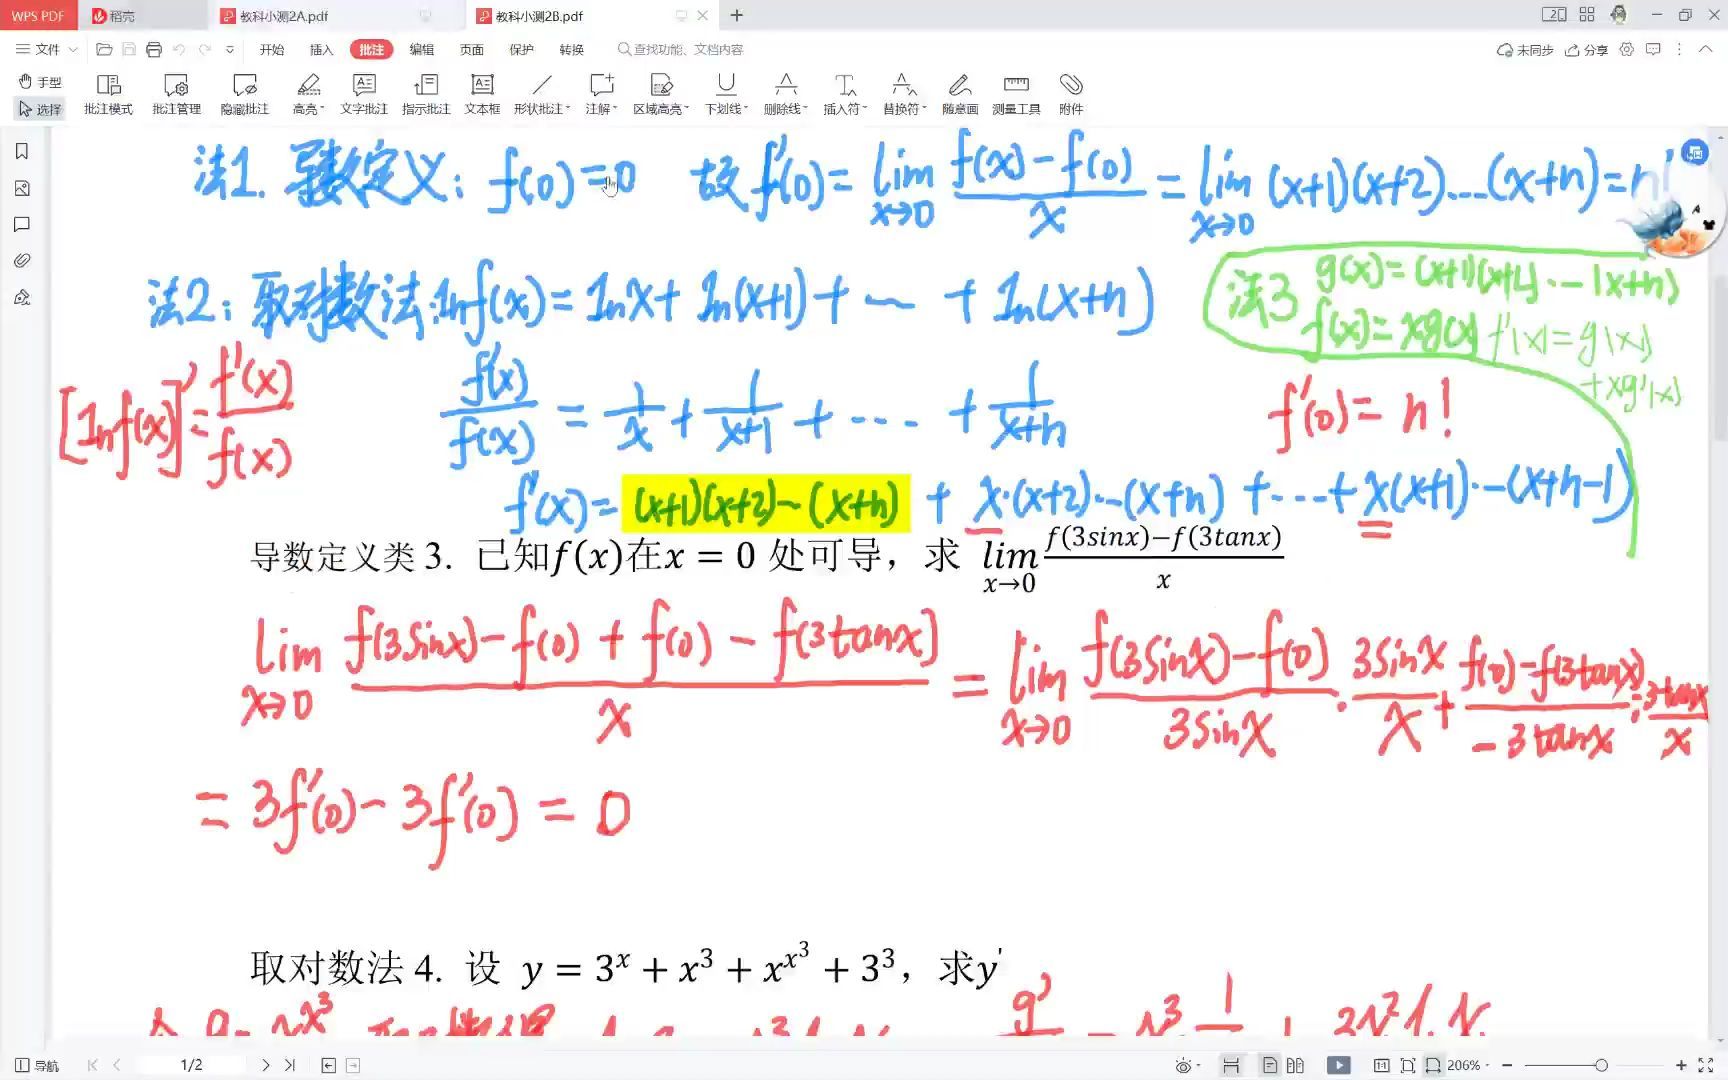 WPS PDF 稻壳 教科小测2A.pdf 教科小测2B.pdf
文件 开始 插入 批注 编辑 页面 保护 转换 查找功能、文档内容 未同步 分享
手型
选择 批注模式 批注管理 隐藏批注 高亮 文字批注 指示批注 文本框 形状批注 注解 区域高亮 下划线 删除线 插入符 替换符 随意画 测量工具 附件
法1. 导数定义: f(0)=0 故f'(0)= lim x→0 (f(x)-f(0))/x = lim x→0 (x+1)(x+2)...(x+n)=n!
法2: 取对数法: ln f(x)= ln x + ln(x+1) + … + ln(x+n)
法3 g(x)=(x+1)(x+2)…(x+n)
f(x)=xg(x) f'(x)=g(x)
+xg'(x)
[ln f(x)]' = f'(x)/f(x)
f'(x)/f(x) = 1/x + 1/(x+1) + …… + 1/(x+n)
f'(0)= n!
f'(x)= (x+1)(x+2)…(x+n) + x·(x+2)…(x+n) +…+ x(x+1)…(x+n-1)
导数定义类 3. 已知f(x)在x = 0 处可导，求 lim x→0 (f(3sinx)−f(3tanx))/x
lim x→0 (f(3sinx)-f(0) + f(0) - f(3tanx))/x = lim x→0 (f(3sinx)-f(0))/3sinx · 3sinx/x + (f(0)-f(3tanx))/(-3tanx) · -3tanx/x
= 3f'(0) - 3f'(0) = 0
取对数法 4. 设 y = 3^x + x^3 + x^{x^3} + 3^3，求y'
导航 1/2 206%